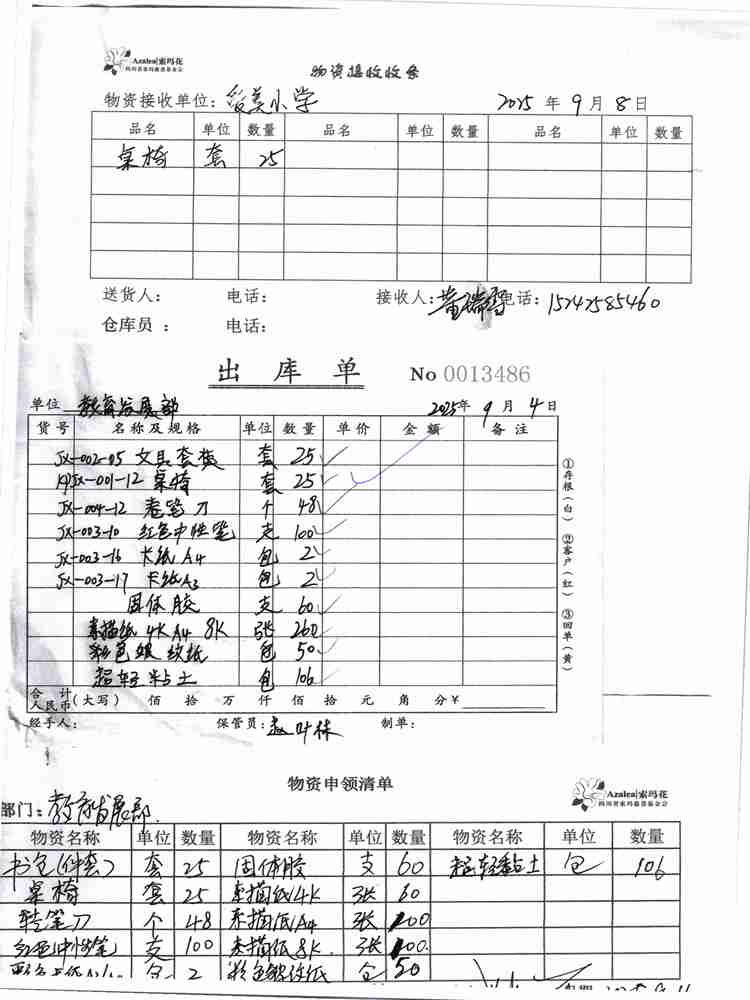 Azalea|索玛花
四川省索玛慈善基金会
物资接收收条
物资接收单位: 俊美小学 2025 年 9 月 8 日
品名 单位 数量 品名 单位 数量 品名 单位 数量
桌椅 套 25
送货人: 电话: 接收人: 董瑞雪 电话: 15242585460
仓库员 : 电话:
出 库 单 No 0013486
单位 教育发展部 2025年 9 月 4 日
货号 名称及规格 单位 数量 单价 金额 备注
JX-002-05 文具套装 套 25
JX-001-12 桌椅 套 25
JX-004-12 卷笔刀 个 48
JX-003-10 红色中性笔 支 100
JX-003-16 卡纸 A4 包 2
JX-003-17 卡纸A3 包 2
固体胶 支 60
素描纸 4K A4 8K 张 260
彩色皱纹纸 包 50
超轻粘土 包 106
合计人民币(大写) 佰 拾 万 仟 佰 拾 元 角 分¥
经手人: 保管员: 赵叶林 制单:
①存根(白) ②客户(红) ③回单(黄)
物资申领清单
Azalea|索玛花
四川省索玛慈善基金会
部门: 教育发展部
物资名称 单位 数量 物资名称 单位 数量 物资名称 单位 数量
书包(件套) 套 25 固体胶 支 60 超轻黏土 包 106
桌椅 套 25 素描纸4K 张 60
转笔刀 个 48 素描纸A4 张 100
红色(中性笔) 支 100 素描纸8K 张 100
包 2 彩色皱纹纸 包 50